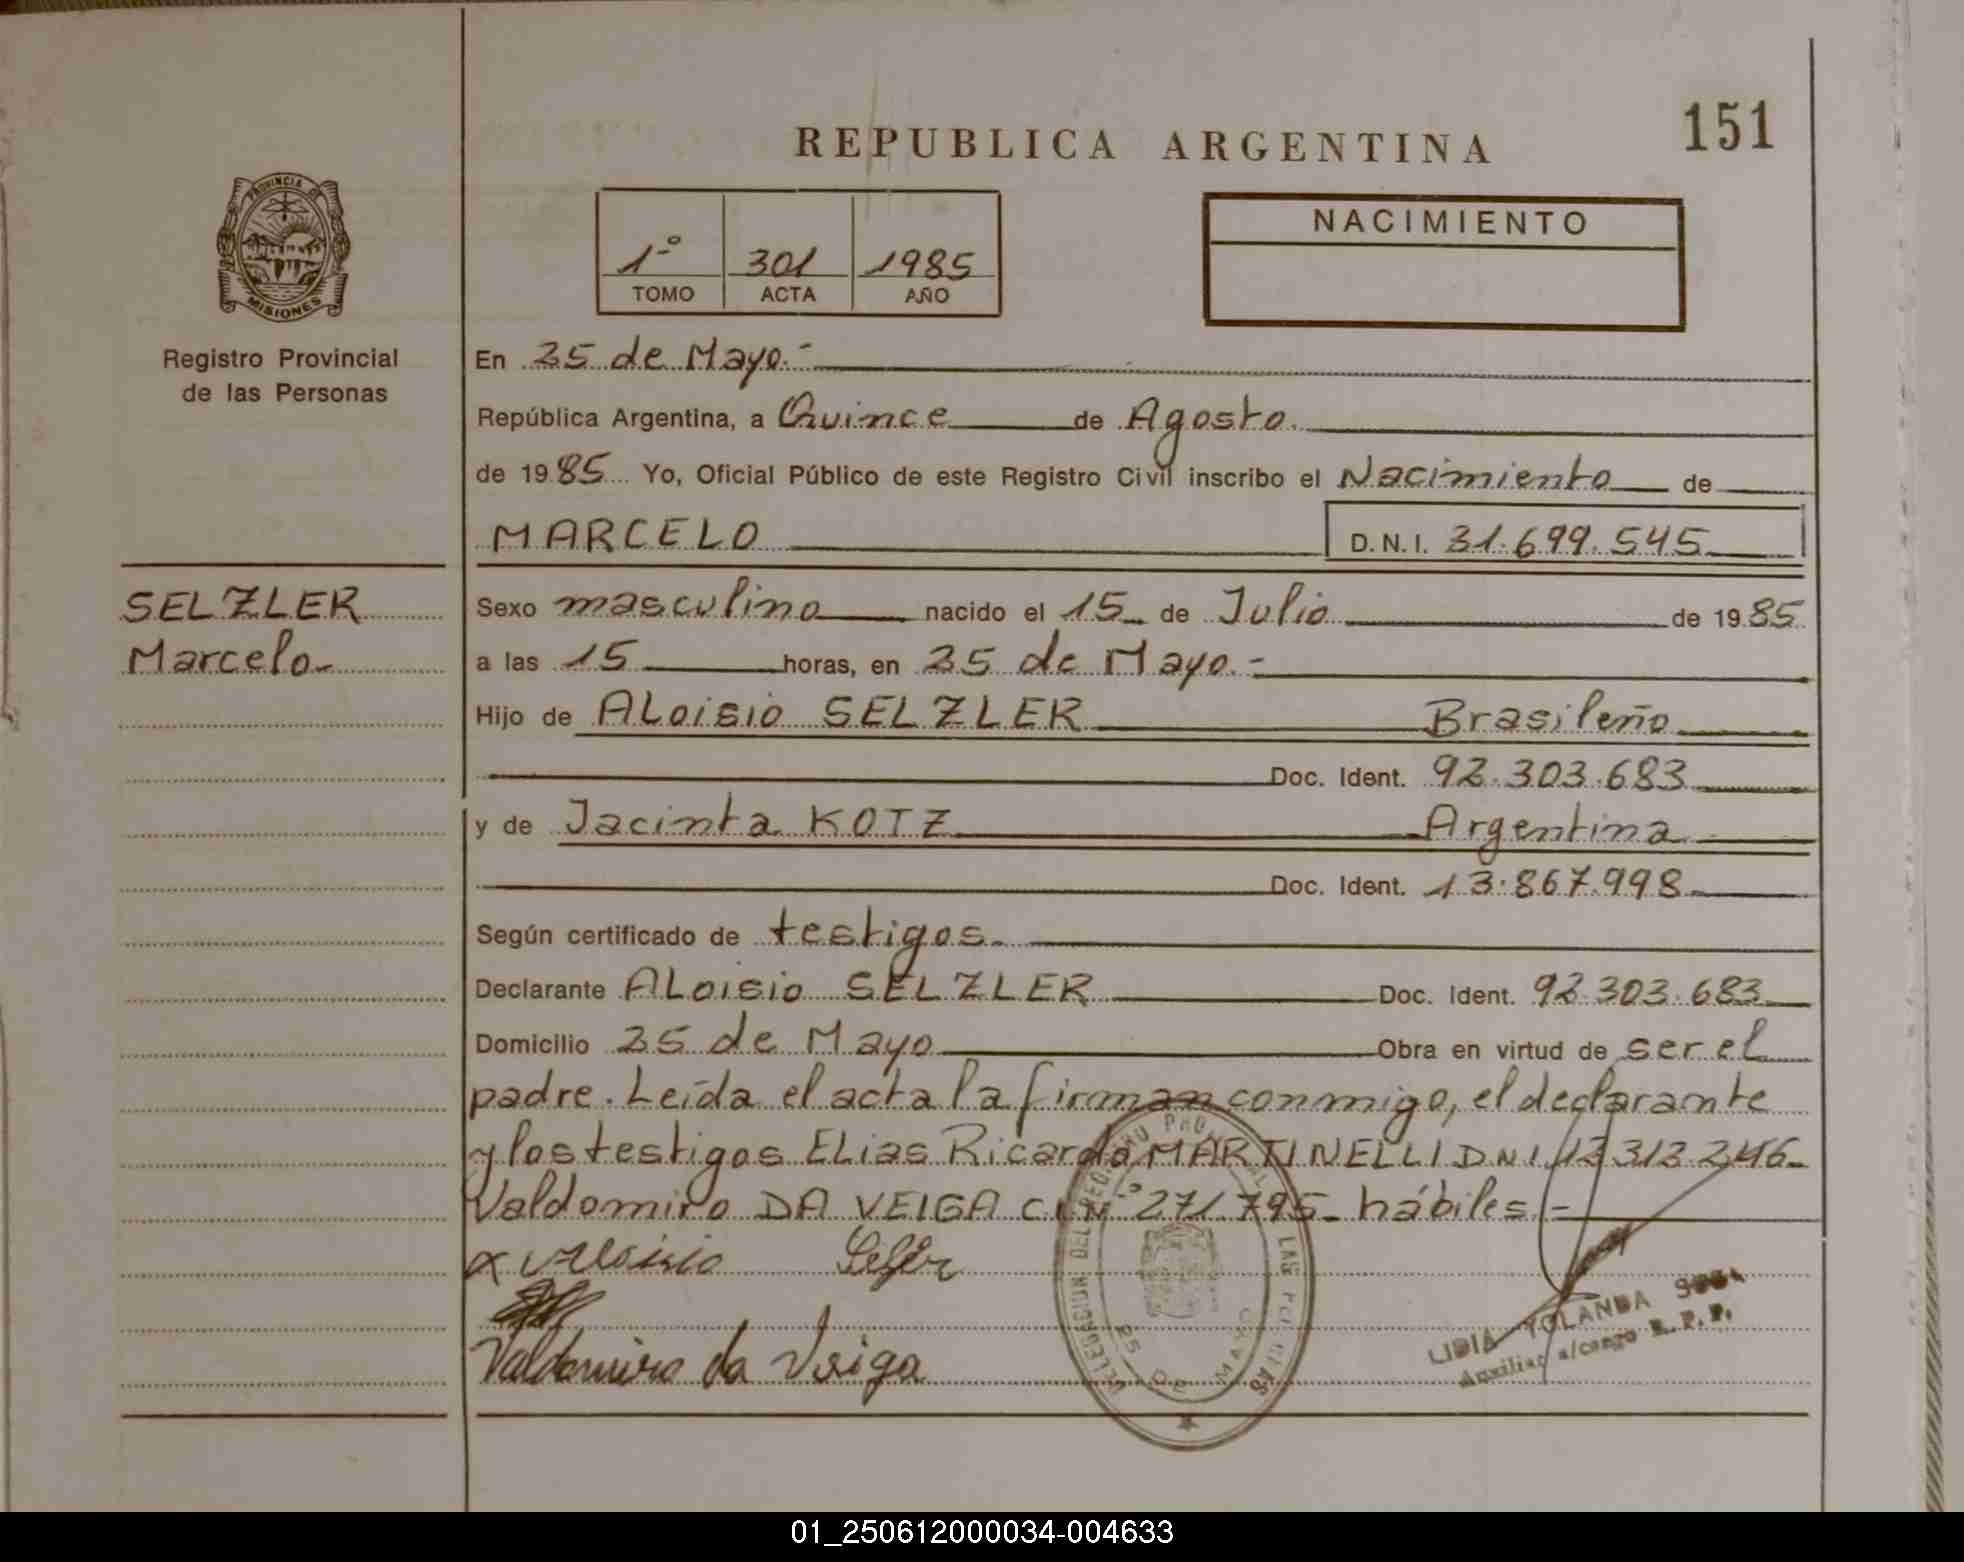 151
REPUBLICA ARGENTINA
PROVINCIA DE
MISIONES
Registro Provincial
de las Personas
1º 301 1985
TOMO ACTA AÑO
NACIMIENTO
En 25 de Mayo.-
República Argentina, a Quince de Agosto.
de 1985 Yo, Oficial Público de este Registro Civil inscribo el Nacimiento de
MARCELO D.N.I. 31.699.545
SELZLER
Marcelo.-
Sexo masculino nacido el 15 de Julio de 1985
a las 15 horas, en 25 de Mayo.-
Hijo de ALoisio SELZLER Brasileño
Doc. Ident. 92.303.683
y de Jacinta KOTZ Argentina
Doc. Ident. 13.867.998
Según certificado de testigos.
Declarante ALoisio SELZLER Doc. Ident. 92.303.683
Domicilio 25 de Mayo Obra en virtud de ser el
padre. Leída el acta la firman conmigo, el declarante
y los testigos ELias Ricardo MARTINELLI DNI 12.313.246-
Valdomiro DA VEIGA C.I Nº 271.795- hábiles.-
x Aloisio
Valdomiro da Veiga
DELEGACION DEL REGISTRO PROVINCIAL DE LAS PERSONAS
25 DE MAYO
LIDIA YOLANDA
Auxiliar a/cargo R. P. P.
01_250612000034-004633